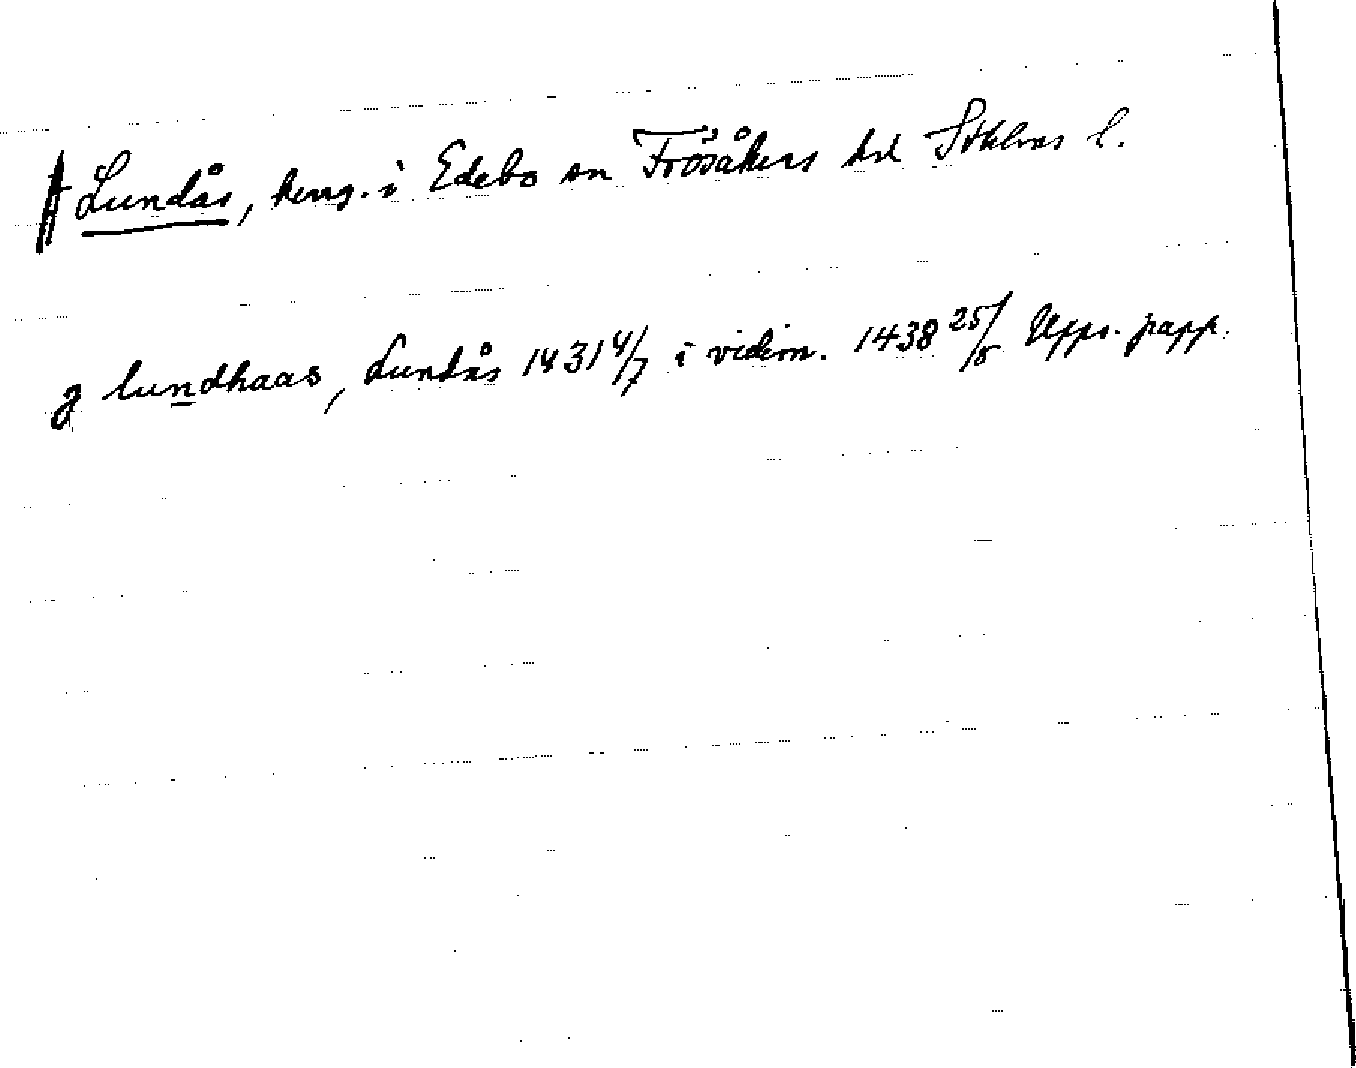 Lundås, hemg. i Edebo sn Frösåkers hd Sthlms l.
g lundhaas, Lundås 1431 4/7 i vidim. 1438 25/5 Upps. papp.